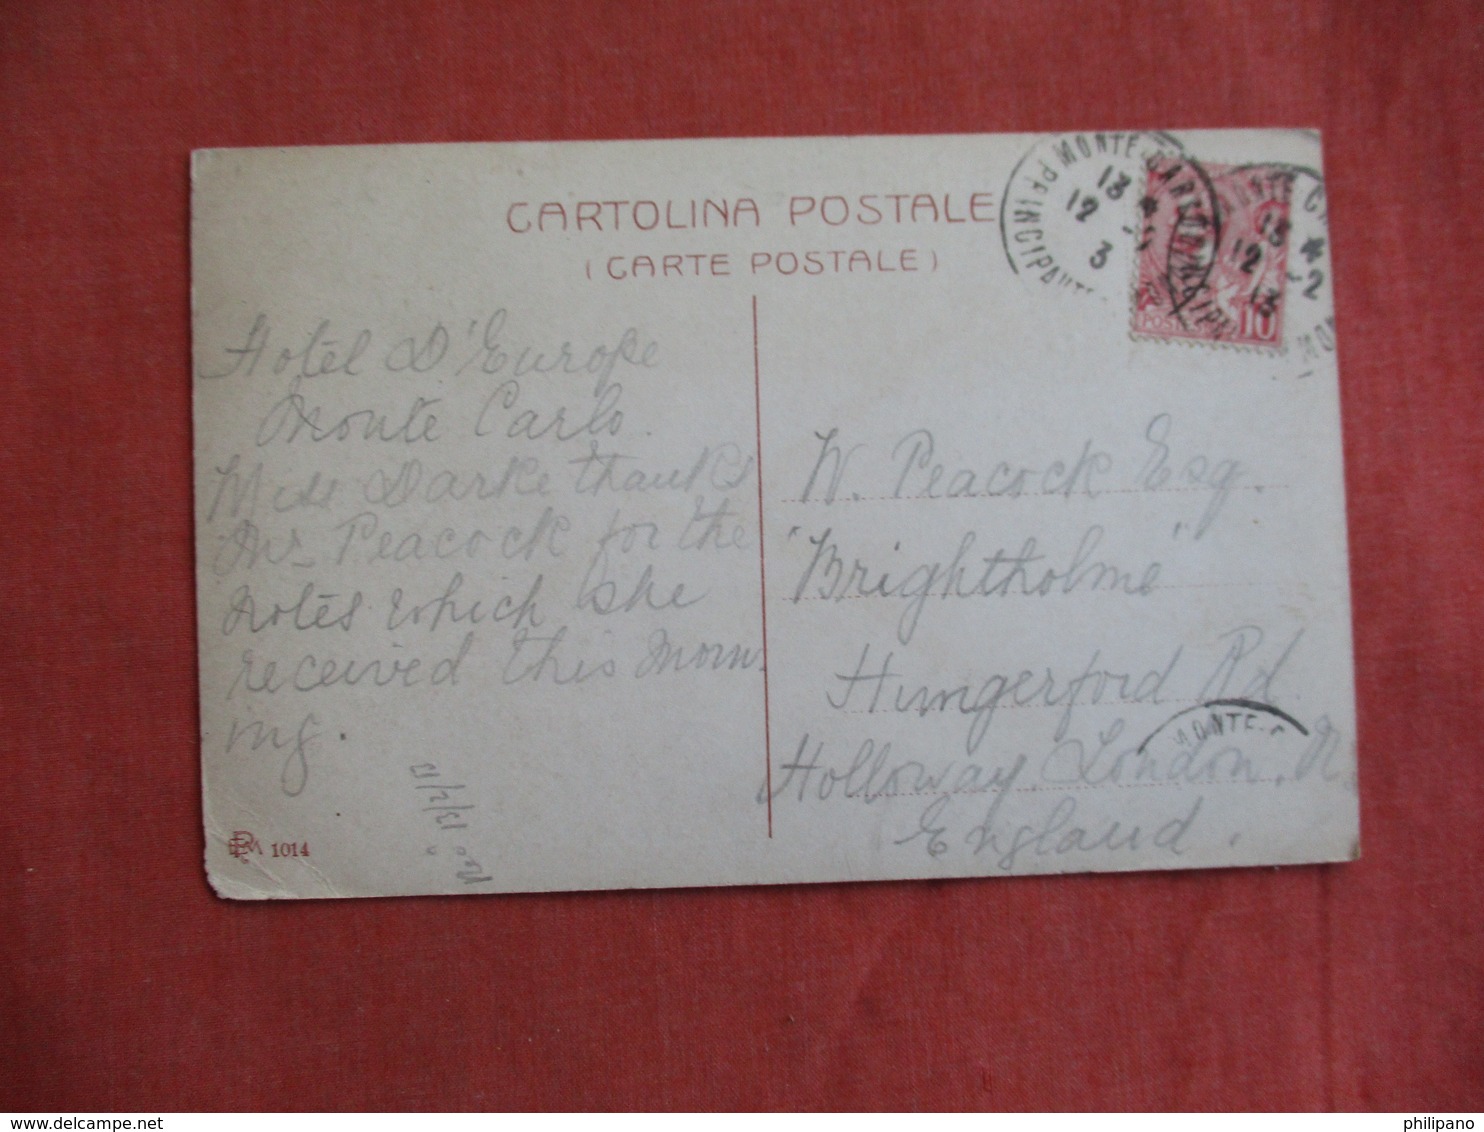 CARTOLINA POSTALE
(CARTE POSTALE)
MONTE-CARLO
13 *
12 - 2
13
PRINCIPAUTE
POSTES 10
Hotel D'Europe
Monte Carlo.
Miss Darke thanks
Mr Peacock for the
notes which she
received this morn-
ing.
13/2/13
W. Peacock Esq.
"Brightholme"
Hungerford Rd
Holloway, London, N
England.
MONTE-C
1014
philipano
www.delcampe.net